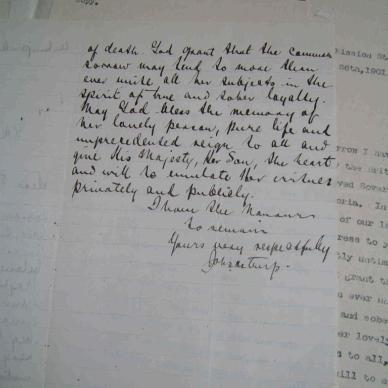 of death. God grant that the common
sorrow may tend to more than
ever unite all her subjects in the
spirit of true and sober loyalty.
May God bless the memory of
her lovely person, pure life and
unprecedented reign to all and
give His Majesty, Her Son, the heart
and will to emulate her virtues
privately and publicly.
I have the
to remain
Yours very respectfully
Mission St
1901
rrow I ha
the
ved Sove
oria. In
of our l
ress to
tly
grant t
ever u
and sobe
er lovel
s to all,
will to e